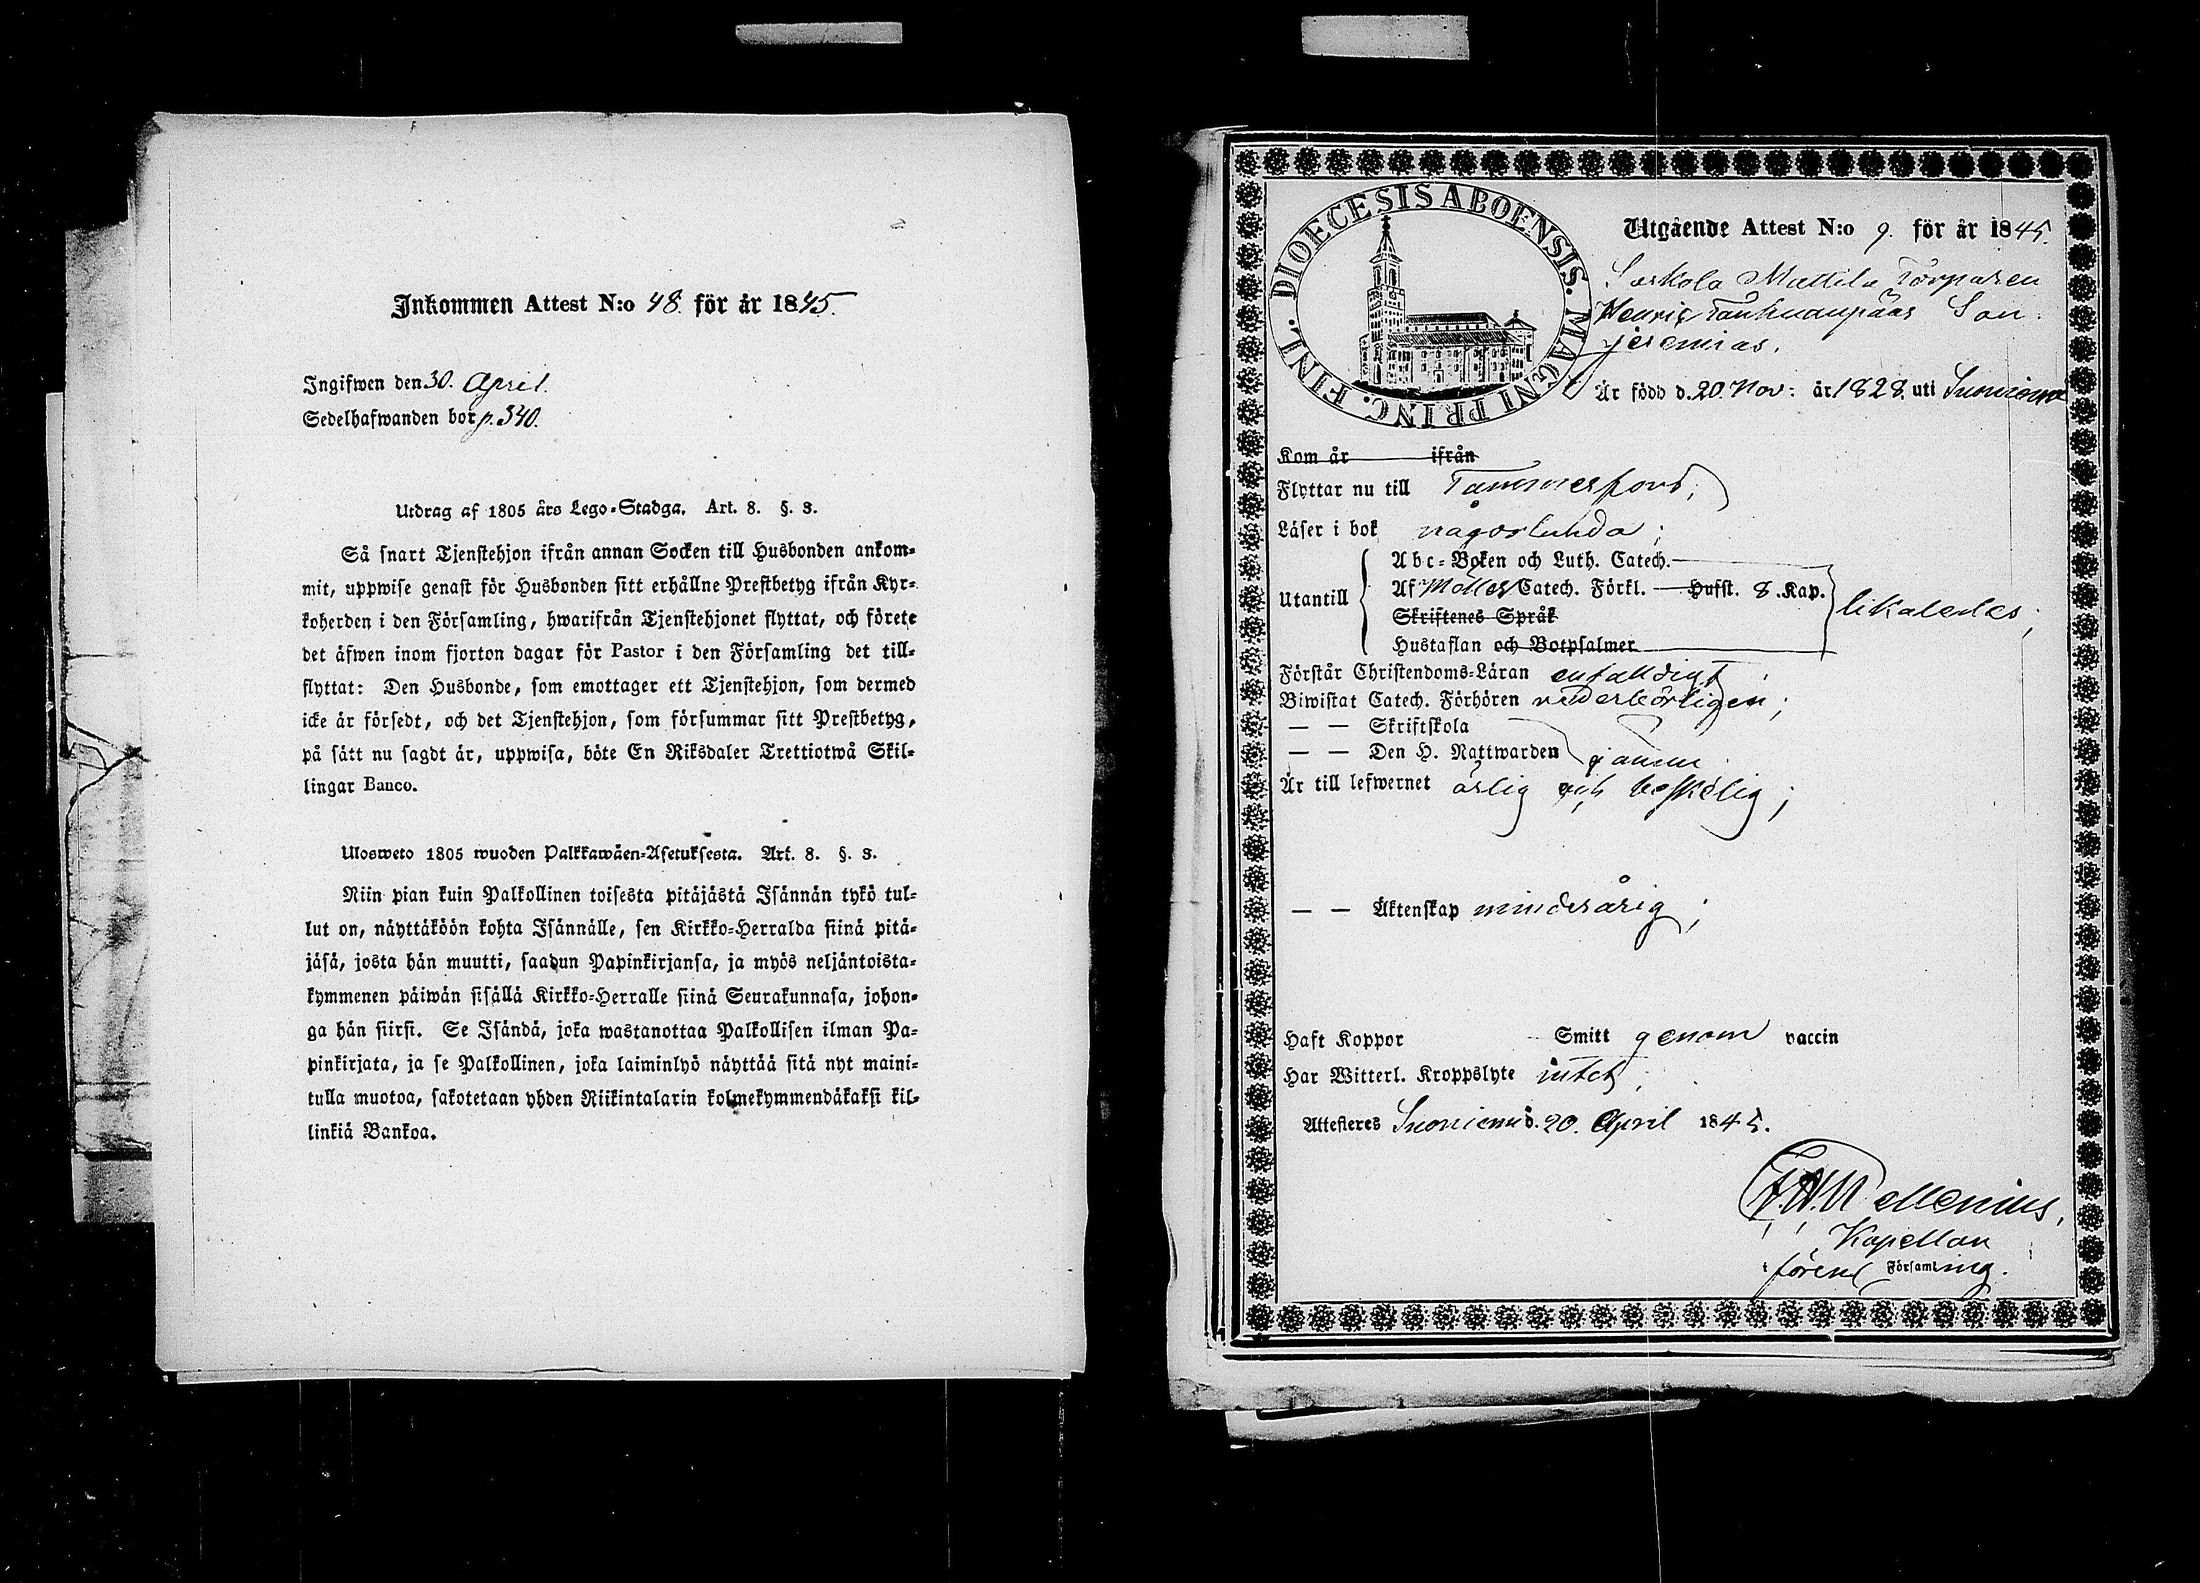 Inkommen Attest N:o 48. för år 1845.
Ingifwen den 30. April.
Sedelhafwanden bor p. 340.
Utdrag af 1805 års Lego-Stadga. Art. 8. §. 3.
Så snart Tjenstehjon ifrån annan Socken till Husbonden ankom-
mit, uppwise genast för Husbonden sitt erhållne Prestbetyg ifrån Kyr-
koherden i den Församling, hwarifrån Tjenstehjonet flyttat, och förete
det äfwen inom fjorton dagar för Pastor i den Församling det till-
flyttat: Den Husbonde, som emottager ett Tjenstehjon, som dermed
icke är försedt, och det Tjenstehjon, som försummar sitt Prestbetyg,
på sätt nu sagdt är, uppwisa, böte En Riksdaler Trettiotwå Skil-
lingar Banco.
Ulosweto 1805 wuoden Palkkawäen-Asetuksesta. Art. 8. §. 3.
Niin pian kuin Palkollinen toisesta pitäjästä Isännän tykö tul-
lut on, näyttäköön kohta Isännälle, sen Kirkko-Herralda siinä pitä-
jäsä, josta hän muutti, saadun Papinkirjansa, ja myös neljäntoista-
kymmenen päiwän sisällä Kirkko-Herralle siinä Seurakunnasa, johon-
ga hän siirsi. Se Isändä, joka wastanottaa Palkollisen ilman Pa-
pinkirjata, ja se Palkollinen, joka laiminlyö näyttää sitä nyt maini-
tulla muotoa, sakotetaan yhden Riikintalarin kolmekymmendäkaksi kil-
linkiä Bankoa.
DIOECESIS ABOENSIS. MAGNI PRINC. FINL.
Utgående Attest N:o 9. för år 1845.
Mattila Torparen
Henric Son
Jeremias.
Är född d. 20. Nov: år 1828. uti Suoniemi
Kom år ifrån
Flyttar nu till Tammerfors;
Läser i bok någorlunda;
Abc-Boken och Luth. Catech.
Utantill Af Möllers Catech. Förkl. Husst. 8. Kap. likaledes;
Skriftenes Språk
Hustaflan och Botpsalmer
Förstår Christendoms-Läran enfaldigt;
Biwistat Catech. Förhören vederbörligen;
— — Skriftskola
— — Den H. Nattwarden
Är till lefwernet ärlig och beskedlig;
— — Äktenskap minderårig;
Haft Koppor Smitt genom vaccin
Har Witterl. Kroppslyte intet;
Attesteres Suoniemi d. 20. April 1845.
Mellenius,
Kapellan
i förend Församling.